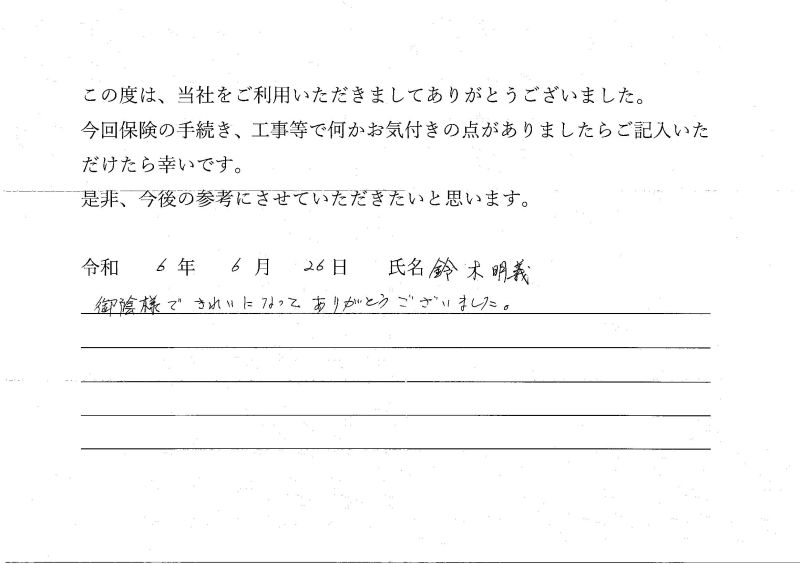 この度は、当社をご利用いただきましてありがとうございました。
今回保険の手続き、工事等で何かお気付きの点がありましたらご記入いた
だけたら幸いです。
是非、今後の参考にさせていただきたいと思います。
令和 6 年 6 月 26 日 氏名 鈴木明義
御陰様で きれいになって ありがとうございました。